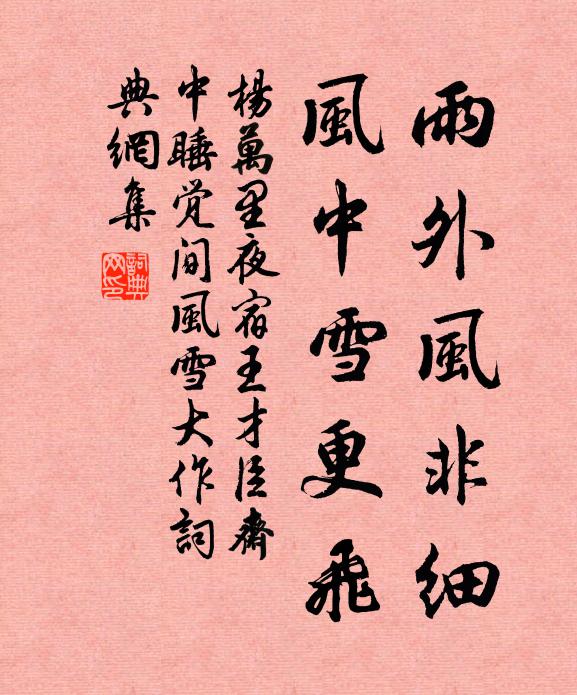 雨外風非細
風中雪更飛
楊萬里夜宿王才臣齋
中睡覚间風雪大作詞
典網集
詞典
网印